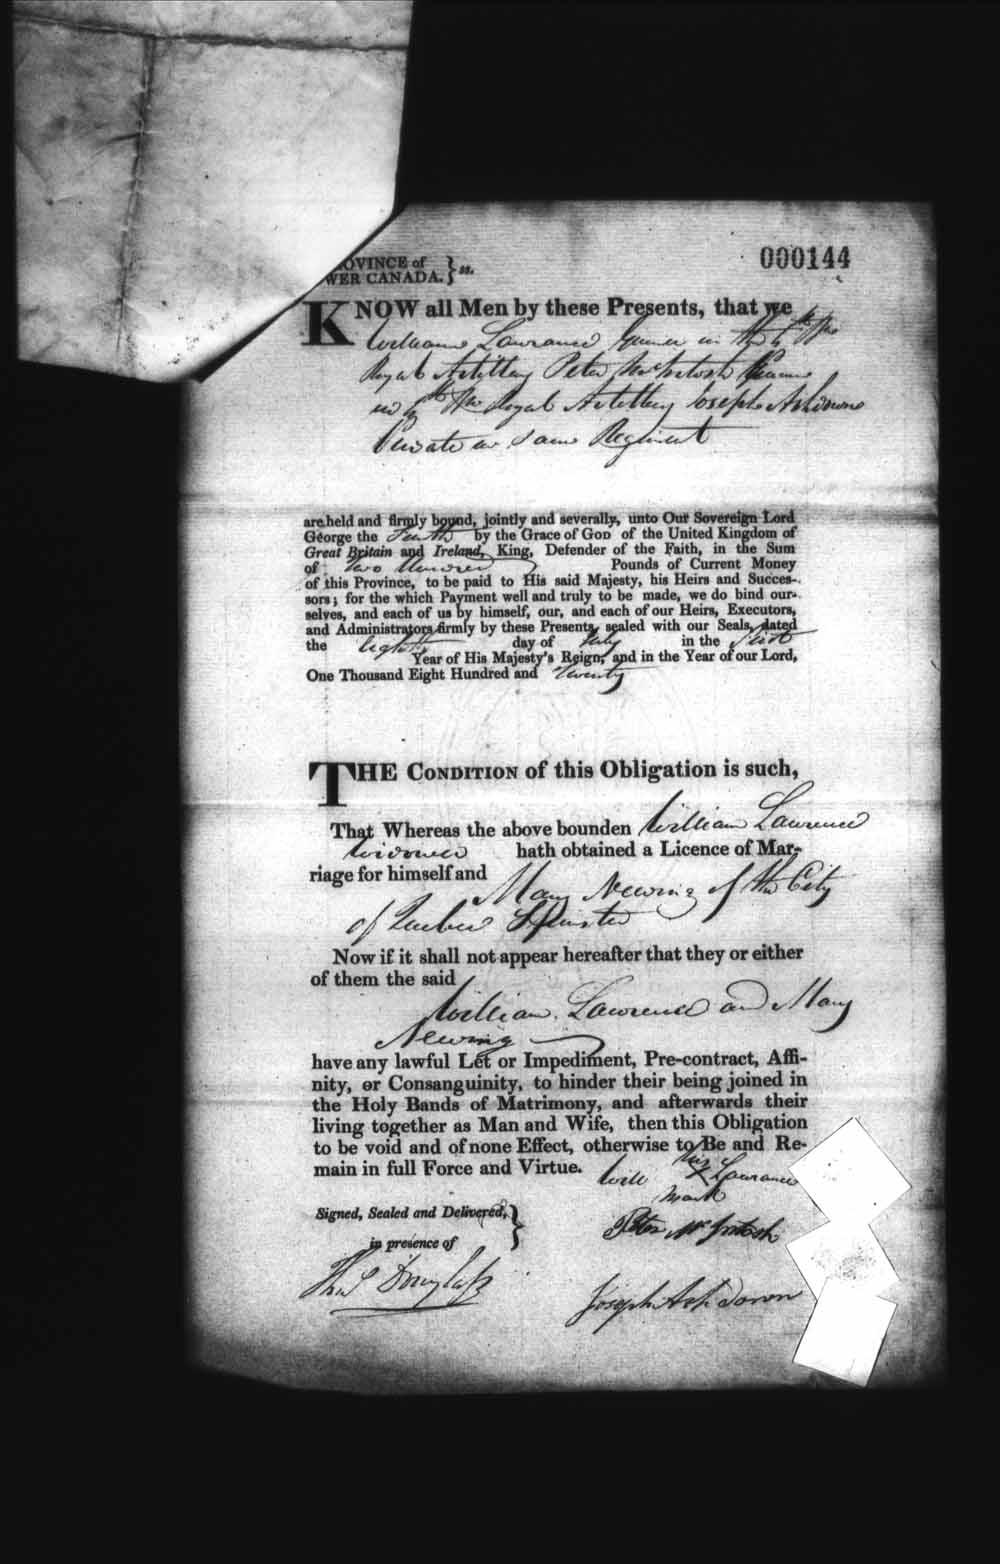 000144
OVINCE of
WER CANADA. } ss.
KNOW all Men by these Presents, that we
William Lawrence Gunner in the
Royal Artillery Peter McIntosh
in Royal Artillery Joseph Ashdown
Private in same Regiment
are held and firmly bound, jointly and severally, unto Our Sovereign Lord
George the Fourth by the Grace of GOD of the United Kingdom of
Great Britain and Ireland, King, Defender of the Faith, in the Sum
of two Hundred Pounds of Current Money
of this Province, to be paid to His said Majesty, his Heirs and Succes-
sors; for the which Payment well and truly to be made, we do bind our-
selves, and each of us by himself, our, and each of our Heirs, Executors,
and Administrators firmly by these Presents, sealed with our Seals, dated
the Eighth day of July in the first
Year of His Majesty's Reign, and in the Year of our Lord,
One Thousand Eight Hundred and twenty
THE CONDITION of this Obligation is such,
That Whereas the above bounden William Lawrence
Widower hath obtained a Licence of Mar-
riage for himself and
Mary Newing of the City
of Quebec Spinster
Now if it shall not appear hereafter that they or either
of them the said
William Lawrence and Mary
Newing
have any lawful Let or Impediment, Pre-contract, Affi-
nity, or Consanguinity, to hinder their being joined in
the Holy Bands of Matrimony, and afterwards their
living together as Man and Wife, then this Obligation
to be void and of none Effect, otherwise to Be and Re-
main in full Force and Virtue.
his
Will X Lawrance
mark
Signed, Sealed and Delivered, }
Peter McIntosh
in presence of
Thos Douglass
Joseph Ashdown